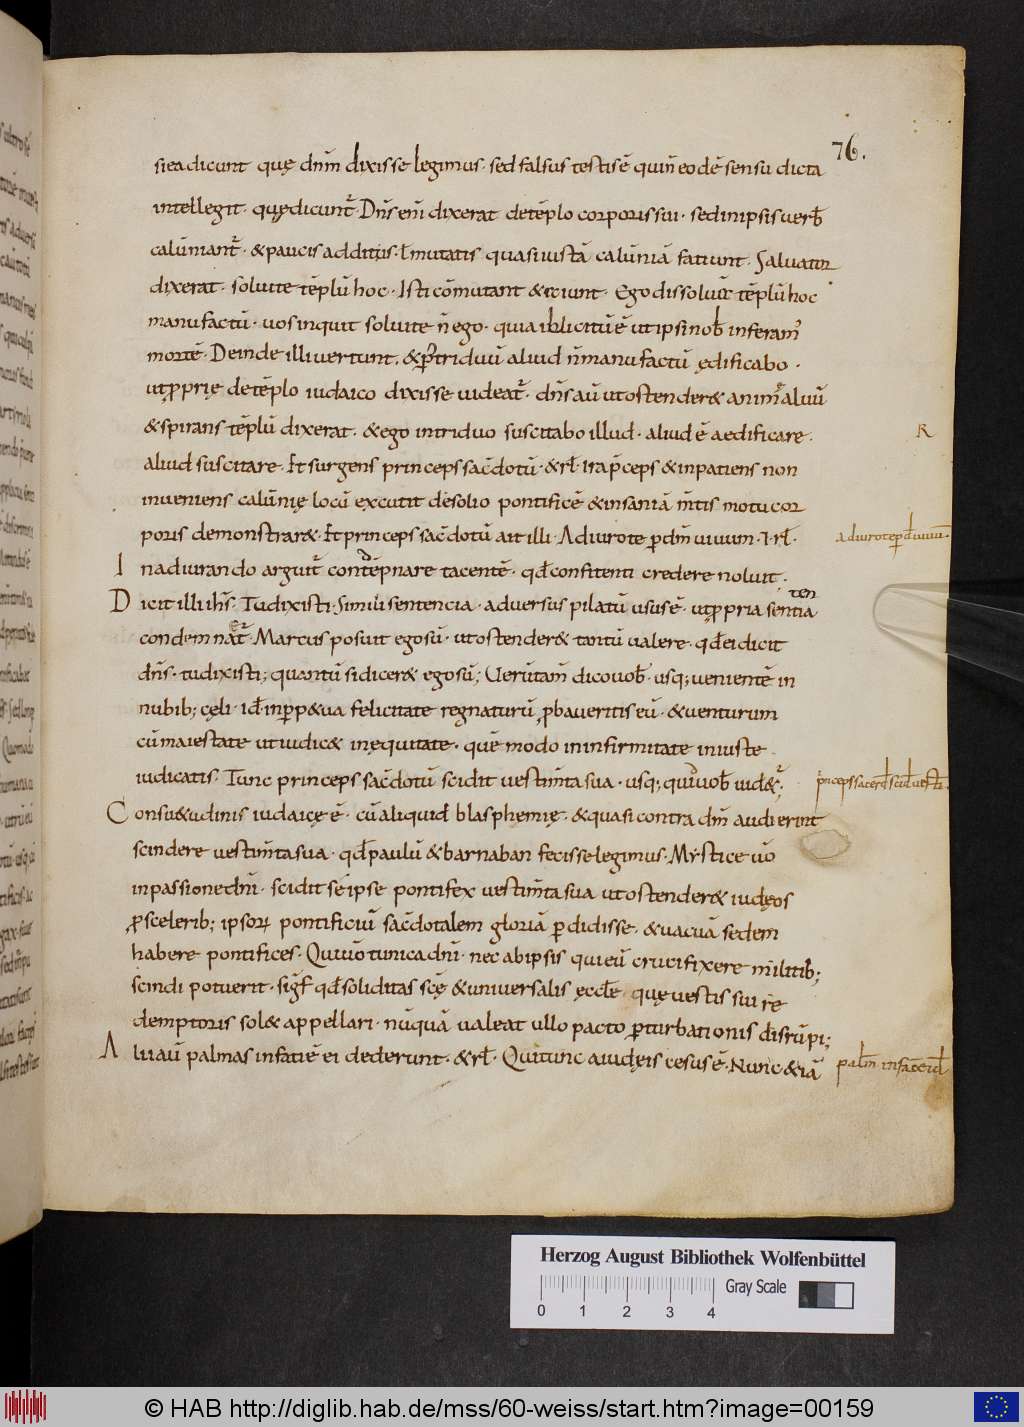 76.
si ea dicunt quę dnm̄ dixisse legimus· sed falsus testis ē qui n̄ eodē sensu dicta
intellegit· quę dicunt᷑· Dn̄s eni dixerat de tēplo corporis sui· sed in ipsis uerb̄
calūniant᷑· & paucis additis· ł mutatis quasi iustā calūniā faciunt· Saluator
dixerat· soluite tēplū hoc· Isti cōmutant & aiunt· Ego dissoluā tēplū hoc
manu factū· uos inquit soluite n̄ ego· quia illicitū ē ut ipsi nob̄ inferam᷒
mortē· Deinde illi uertunt· & p̄ triduū aliud n̄ manu factū ędificabo·
ut ꝓprie de tēplo iudaico dixisse uideat᷑· dn̄s aū ut ostender& animal uiuū
& spirans tēplū dixerat· & ego in triduo suscitabo illud· aliud ē aedificare·
R
aliud suscitare· Et surgens princeps sac̄dotū· & rł· Ira p̄ceps & inpatiens non
inueniens calūnię locū excutit de solio pontificē & insaniā m̄tis motu cor
poris demonstrar&· Et princeps sac̄dotū ait illi· Adiuro te ꝑ dm̄ uiuum· & rł·
adiuro te ꝑ d̄ uiuum·
In adiurando arguit᷑ contēpnare tacentē· qđ confitenti credere noluit·
Dicit illi ihs̄· Tu dixisti· Simili sentencia· aduersus pilatū usus ē· ut ꝓpria sentia
ten
condemnat᷑· Marcus posuit ego sū· ut ostender& tantū ualere· qđ ei dicit
dn̄s· tu dixisti; quantū si dicer& ego sū; Uerūtam̄ dico uob̄· usq; uenientē in
nubib; cęli· id̄ in ꝑp&ua felicitate regnaturū ꝓbaueritis eū· & uenturum
cū maiestate ut iudic& in equitate· quē modo in infirmitate iniuste
iudicatis· Tunc princeps sac̄dotū scidit uestim̄ta sua· usq; quid uob̄ uid&᷑;
princeps sacerd̄ scid̄ uestī·
Consu&udinis iudaicę ē· cū aliquid blasphemię· & quasi contra dm̄ audierint
scindere uestim̄ta sua· qđ paulū & barnaban fecisse legimus· Mystice uō
in passione dn̄i· scidit se ipse pontifex uestim̄ta sua ut ostender& iudęos
ꝓ scelerib; ipsorꝫ pontificiū sac̄dotalem gloriā ꝑdidisse· & uacuā sedem
habere pontifices· Qui uō tunica dn̄i· nec ab ipsis qui eū crucifixere militib;
scindi potuerit· sigf̄ qđ soliditas scę & uniuersalis ęccł̄e· quę uestis sui re
demptoris sol& appellari· nūquā ualeat ullo pacto ꝑturbationis disrūpi;
Alii aū palmas in faciē ei dederunt· & rł· Qui tunc a iudęis cesus ē· Nunc & iā
palm̄ in facē eid̄
Herzog August Bibliothek Wolfenbüttel
Gray Scale
0 1 2 3 4
© HAB http://diglib.hab.de/mss/60-weiss/start.htm?image=00159